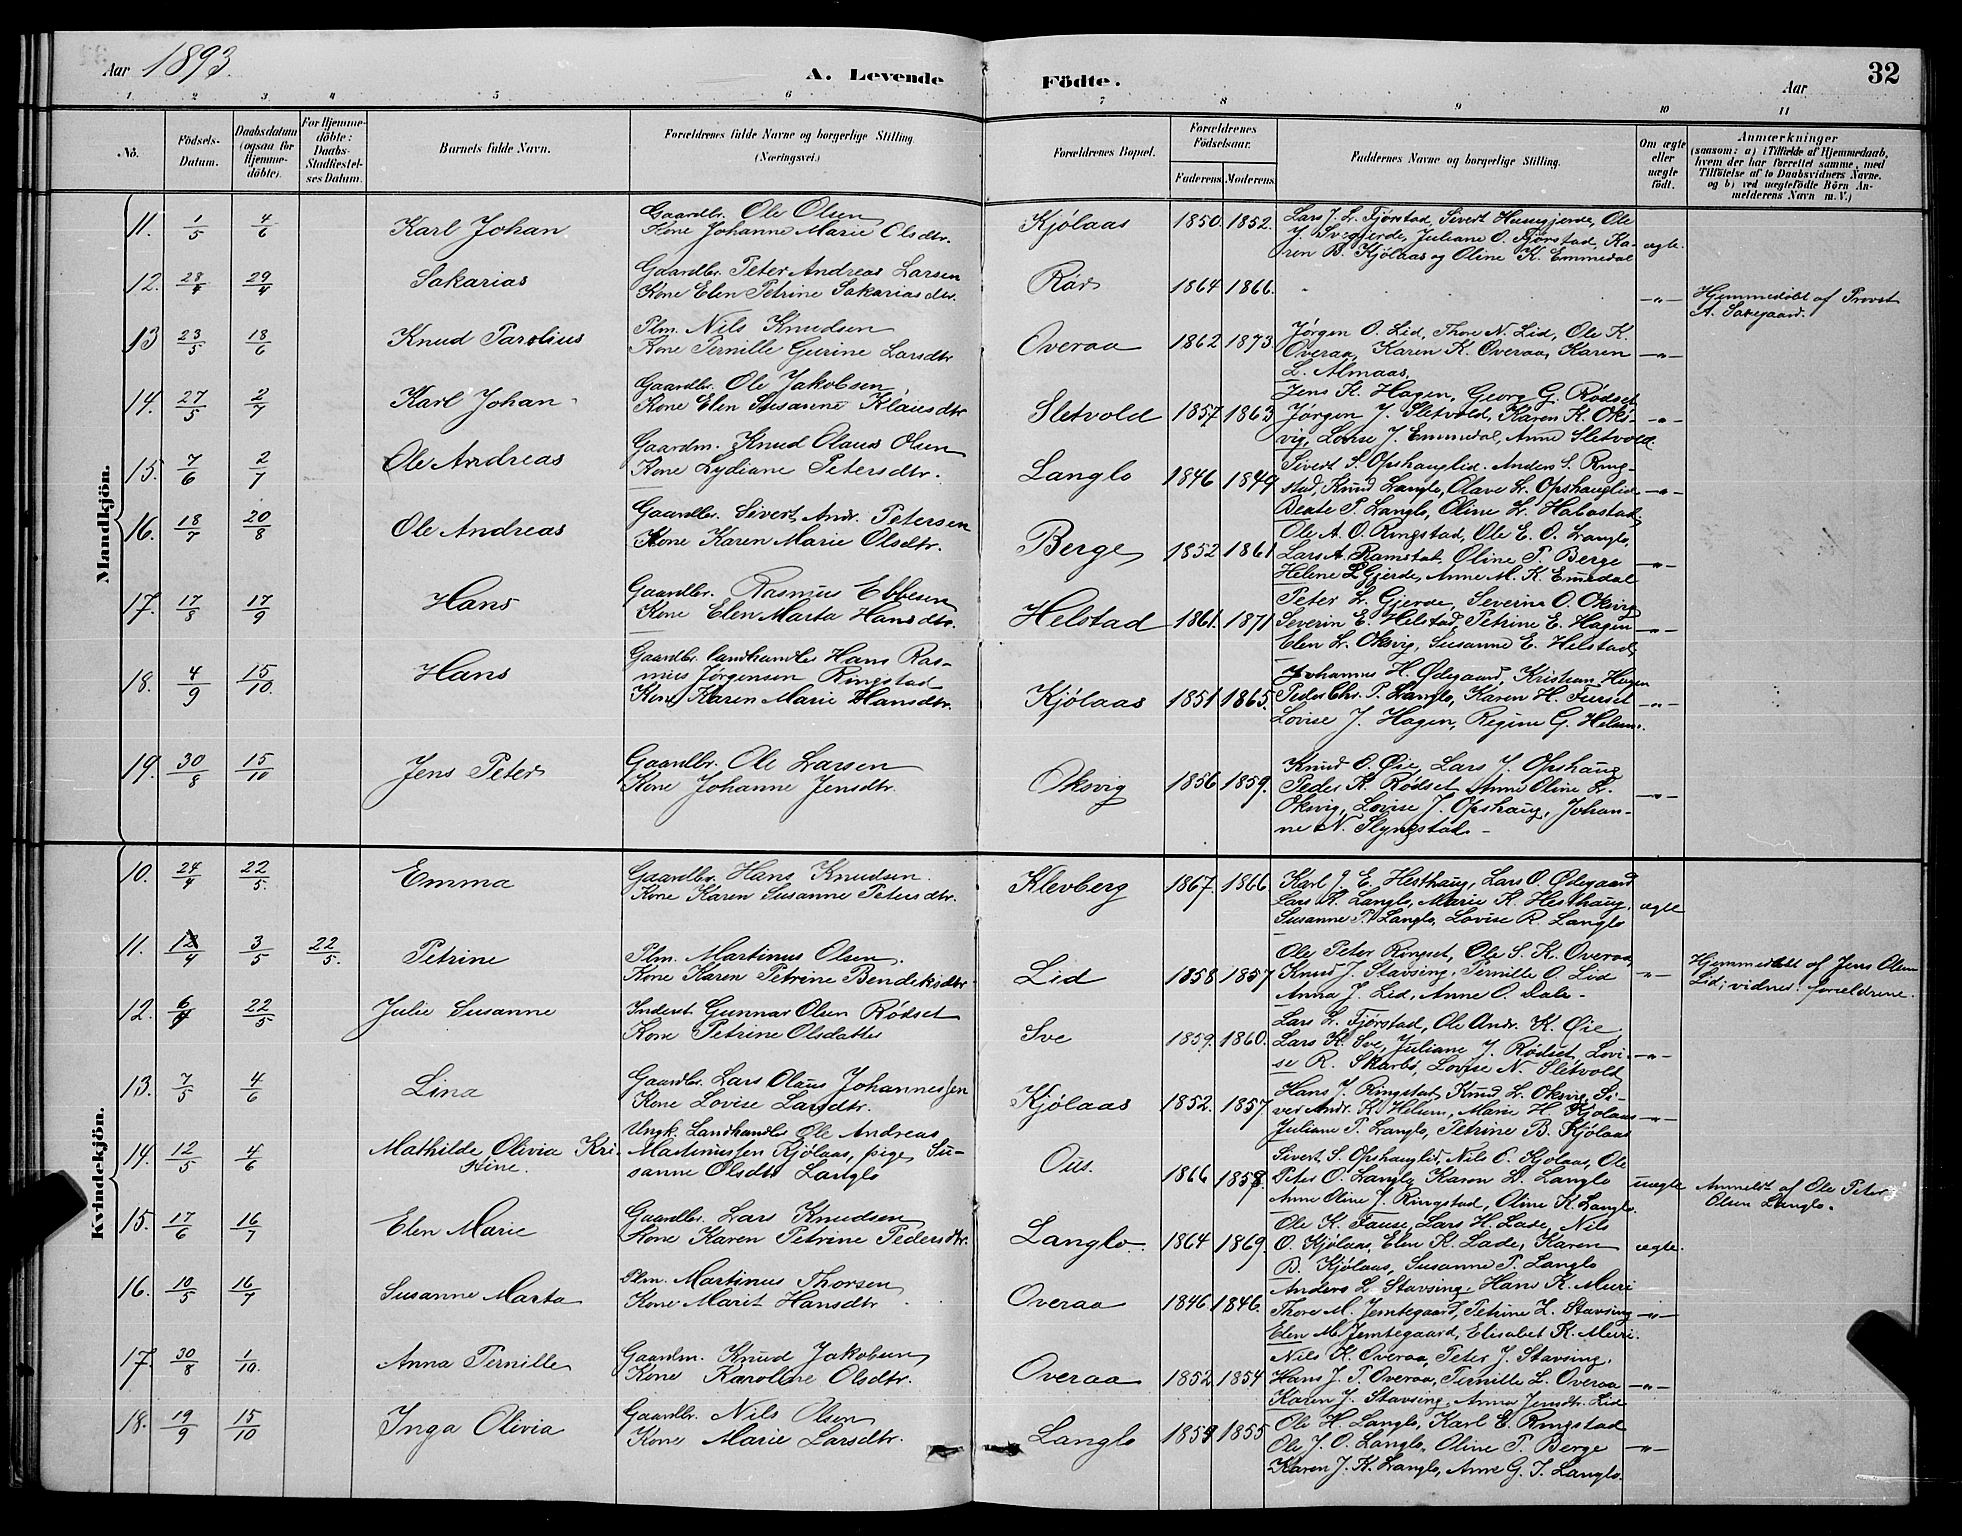 Aar 1893.
A. Levende Födte.
Aar
32
1 2 3 4 5 6 7 8 9 10 11
No.
Födsels-Datum.
Daabsdatum (ogsaa for Hjemme-döbte).
For Hjemme-döbte: Daabs-Stadfæstel-ses Datum.
Barnets fulde Navn.
Forældrenes fulde Navne og borgerlige Stilling. (Næringsvei.)
Forældrenes Bopæl.
Forældrenes Födselsaar.
Faderens. Moderens.
Faddernes Navne og borgerlige Stilling.
Om ægte eller uægte født.
Anmærkninger
(saasom: a) i Tilfælde af Hjemmedaab,
hvem der har forrettet samme, med
Tilföielse af to Daabsvidners Navne.
og b) ved uægtefödte Börn An-
melderens Navn m. V.)
Mandkjön.
11. 1/5 4/6 Karl Johan
Gaardbr. Ole Olsen
Kone Johanne Marie Olsdtr.
Kjölaas 1850. 1852.
Lars J. L. Fjørstad, Sivert Husegjerde, Ole
J. Svegjerde, Juliane O. Fjørstad, Ka-
ren B. Kjölaas og Oline K. Emmedal
ægte.
12. 28/4 29/4 Sakarias
Gaardbr. Peter Andreas Larsen
Kone Elen Petrine Sakariasdtr.
Rød 1864 1866.
-"-
Hjemmedöbt af Provst
A. Saxegaard.
13 23/5 18/6 Knud Parolius
Plm. Nils Knudsen
Kone Pernille Gurine Larsdtr
Overaa 1862 1873
Jørgen O. Lid, Thore N. Lid, Ole K.
Overaa, Karen K. Overaa, Karen
L. Almaas.
-"-
14. 27/5 2/7 Karl Johan
Gaardbr. Ole Jakobsen
Kone Elen Susanne Klausdtr
Sletvold 1857 1863
Jens K. Hagen, Georg G. Rødset
Jørgen J. Sletvold, Karen K. Oks-
vig, Lovise J. Emmedal, Anne Sletvold.
-"-
15. 7/6 2/7 Ole Andreas
Gaardm. Knud Olaus Olsen
Kone Lydiane Petersdtr.
Langlo 1846 1849
Sivert S. Opshauglid. Anders S. Ring-
stad, Knud Langlo, Olave L. Opshauglid
Beate P. Langlo, Oline L. Habostad
-"-
16. 18/7 20/8 Ole Andreas
Gaardbr. Sivert Andr. Petersen
Kone Karen Marie Olsdtr.
Berge 1852 1861
Ole A. O. Ringstad, Ole E. O. Langlo,
Lars A. Ramstad, Oline P. Berge
Helene L Gjerde, Anne M. K. Emedal
-"-
17. 17/8 17/9 Hans
Gaardbr. Rasmus Ebbesen
Kone Elen Marta Hansdtr.
Helstad 1861. 1871
Peter L. Gjerde, Severine O. Oksvig
Severin E. Helstad, Petrine E. Hagen
Elen L. Oksvig, Susanne E. Helstad
-"-
18. 4/9 15/10. Hans
Gaardbr. landhandler Hans Ras-
mus Jörgensen Ringstad
Kone Karen Marie Hansdtr.
Kjölaas 1851 1865.
Johannes H. Ødegaard, Kristian Hagen
Peder Chr. P. Langlo, Karen H. Furset
Lovise J. Hagen, Regine G. Helsem.
-"-
19. 30/8 15/10 Jens Peter
Gaardbr. Ole Larsen
Kone Johanne Jensdtr.
Oksvig 1856 1859.
Knud O. Øie, Lars J. Opshaug
Peder K. Rødset, Anne Oline L.
Oksvig, Lovise J. Opshaug, Johan-
ne N. Slyngstad.
-"-
Kvindekjön.
10. 24/4 22/5. Emma
Gaardbr. Hans Knudsen.
Kone Karen Susanne Petersdtr.
Klevberg 1867. 1866
Karl J. E. Hesthaug, Lars O. Ødegaard
Lars K. Langlo, Marie K. Hesthaug,
Susanne P. Langlo, Lovise R. Langlo
ægte
11. 12/4 3/5 22/5. Petrine
Plm. Martinus Olsen.
Kone Karen Petrine Bendeksdtr
Lid 1858 1857
Ole Peter Ringset, Ole S. K. Overaa,
Knud J. Stavsing, Pernille O. Lid
Anna J. Lid, Anne O. Dale.
-"-
Hjemmedöbt af Jens Olsen
Lid; vidner: forældrene.
12. 22/5 Julie Susanne
Inderst Gunnar Olsen Rödset
Kone Petrine Olsdatter
Sve 1859. 1860.
Lars L. Fjørstad, Ole Andr. K. Øie,
Lars K. Sve, Juliane J. Rödset, Lovi-
se R. Skarbö, Lovise N. Sletvold
-"-
13. 7/5 4/6 Lina
Gaardbr. Lars Olaus Johannessen
Kone Lovise Larsdtr.
Kjölaas 1852. 1857
Hans J. Ringstad, Knud L. Oksvig, Si-
ver Andr. K. Helsem, Marie H. Kjølaas
Juliane P. Langlo, Petrine B. Kjölaas
-"-
14. 12/5 4/6 Mathilde Olivia Kri-
stine.
Ungk. Landhandler Ole Andreas
Martinussen Kjölaas, pige Su-
sanne Olsdtr Langlo
Ous. 1866 1858
Sivert S. Opshauglid, Nils P. Kjölaas, Ole
Peter O. Langlo, Karen L. Langlo
Anne Oline J. Ringstad, Oline K. Langlo.
uægte
Anmeldt af Ole Peter
Olsen Langlo.
15. 17/6 16/7 Elen Marie
Gaardbr. Lars Knudsen
Kone Karen Petrine Pedersdtr.
Langlo. 1864 1869
Ole K. Fause, Lars H. Lade, Nils
O. Kjölaas, Elen K. Lade, Karen
B. Kjölaas, Susanne P. Langlo
ægte.
16. 10/5 16/7 Susanne Marta
Plm. Martinus Thorsen
Kone Marit Hansdtr
Overaa 1846 1846.
Anders L. Stavsing, Hans K. Muri
Thore M. Jemtegaard, Petrine L. Stavsing
Elen M. Jemtegaard, Elisabet K. Muri.
-"-
17. 30/8 1/10. Anna Pernille
Gaardm. Knud Jakobsen
Kone Karoline Olsdtr.
Overaa 1852 1854
Nils K. Overaa, Peter J. Stavsing,
Hans J. P. Overaa, Pernille L. Overaa
Karen J. Stavsing, Anna Jensdtr. Lid
-"-
18. 19/9 15/10 Inga Olivia
Gaardbr. Nils Olsen
Kone Marie Larsdtr.
Langlo 1855
Ole H. Langlo, Karl E. Ringstad
Ole J. O. Langlo, Oline P. Berge
Karen J. K. Langlo, Anne G. J. Langlo.
-"-